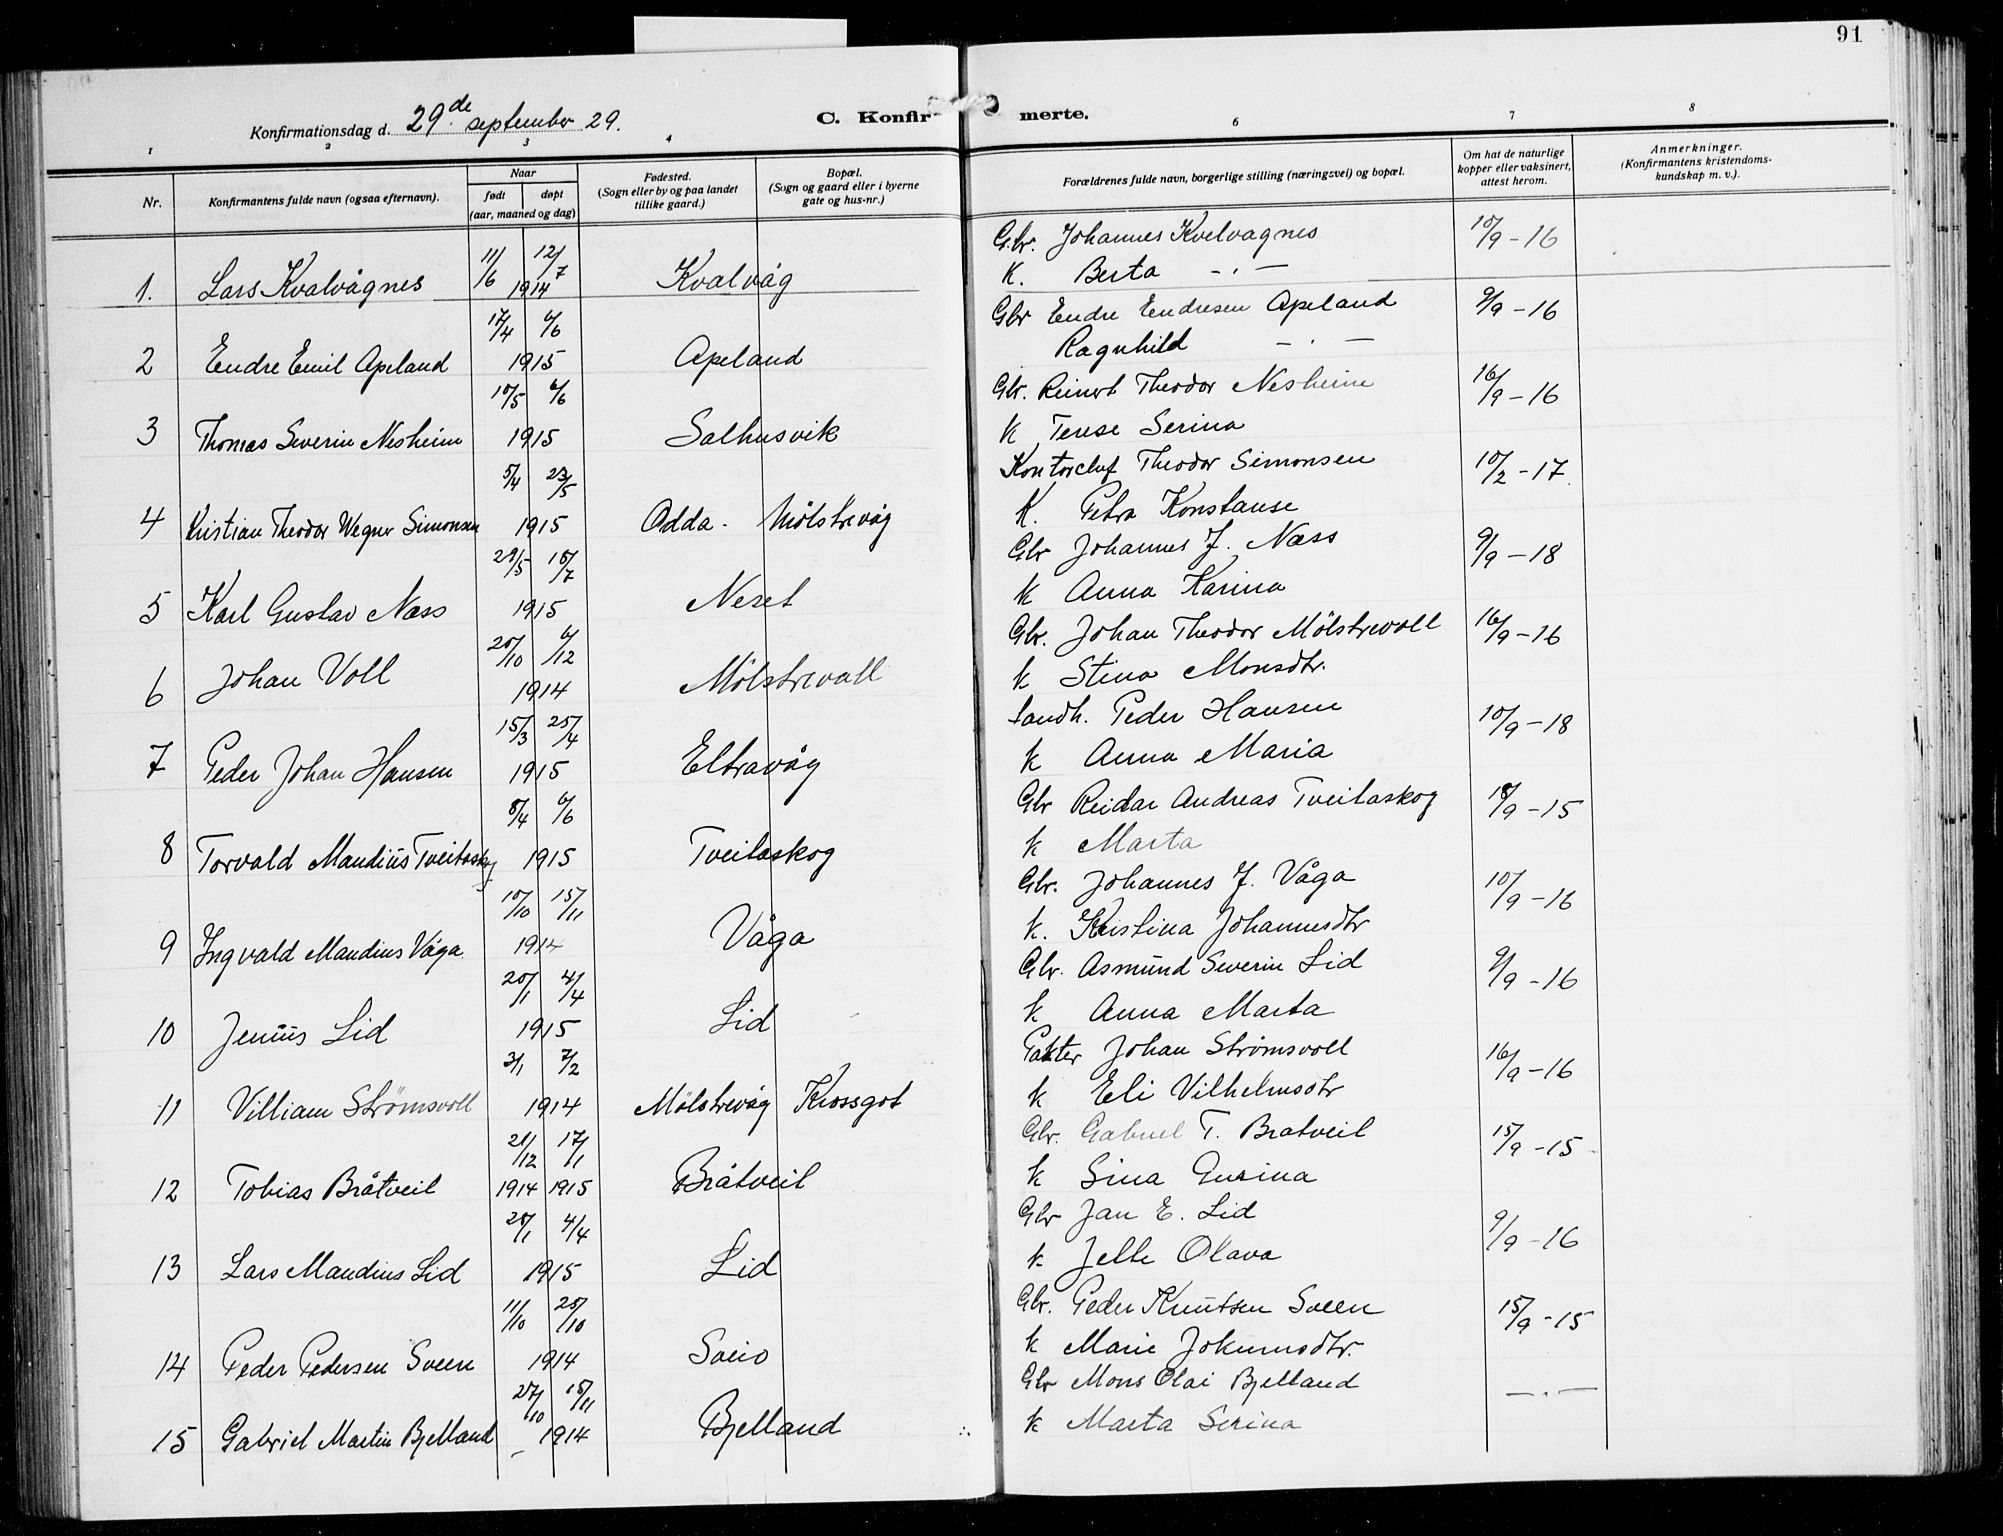 91
Konfirmationsdag d. 29de september 29.
C. Konfirmerte.
1 2 3 4 6 7 8
Nr.
Konfirmantens fulde navn (ogsaa efternavn).
Naar
født døpt
(aar, maaned og dag)
Fødested.
(Sogn eller by og paa landet
tillike gaard.)
Bopæl.
(Sogn og gaard eller i byerne
gate og hus-nr.)
Forældrenes fulde navn, borgerlige stilling (næringsvei) og bopæl.
Om hat de naturlige
kopper eller vaksinert,
attest herom.
Anmerkninger.
(Konfirmantens kristendoms-
kundskap m. v.).
11/6 12/7 Gbr. Johannes Kvelvagnes 10/9-16
1. Lars Kvalvågnes 1914 Kvalvåg K. Berta -"-
17/4 6/6 Gbr Endre Endresen Apeland 9/9-16
2 Endre Emil Apeland 1915 Apeland Ragnhild -"-
10/5 6/6 Gbr. Reinert Theodor Nesheim 16/9-16
3 Thomas Severin Nesheim 1915 Salhusvik k Terese Serina
5/4 23/5 Kontorchef Theodor Simonsen 10/2-17.
4 Kristian Theodor Wegner Simonsen 1915 Odda - Mølstrevåg K. Petra Konstanse
29/5 18/7 Gbr Johannes J. Næss 9/9-18
5 Karl Gustav Næss 1915 Neset k Anna Karina
20/10 6/12 Gbr. Johan Theodor Mölstrevoll 16/9-16
6 Johan Voll 1914 Mölstrevoll k Stina Monsdtr.
15/3 25/4 Landh. Peder Hansen 10/9-18
7 Peder Johan Hansen 1915 Eltravåg k Anna Maria
8/4 6/6 Gbr Reidar Andreas Tveitaskog 18/9-15
8 Torvald Mandius Tveitaskog 1915 Tveitaskog k Marta
10/10 15/11 Gbr. Johannes J. Våga 10/9-16
9 Ingvald Mandius Våga 1914 Våga k. Kristina Johannesdtr
20/1 4/4 Gbr. Asmund Severin Lid 9/9-16
10 Jenius Lid 1915 Lid k Anna Marta
3/1 7/2 Pakter Johan Strømsvoll 16/9-16
11 Villiam Strömsvoll 1914 Mölstrevåg Krossgot k Eli Vilhelmsdtr
21/12 17/1 Gbr. Gabriel T. Bratveit 15/9-15
12 Tobias Bråtveit 1914 1915 Bråtveit k Sina Gurina
20/1 4/4 Gbr Jan E. Lid 9/9-16
13 Lars Mandius Lid 1915 Lid k. Jelle Olava
11/10 25/10 Gbr. Peder Knutsen Sveen 15/9-15
14 Peder Pedersen Sveen 1914 Sveio k Marie Jokumsdtr.
27/10 15/11 Gbr Mons Olai Bjelland -"-
15 Gabriel Martin Bjelland 1914 Bjelland k Marta Serina